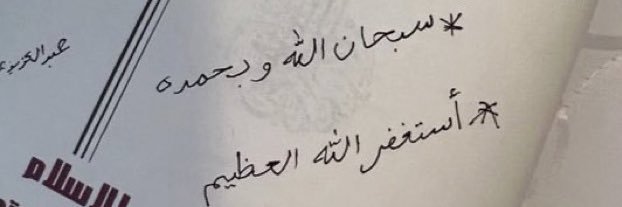 * سبحان الله وبحمده
* أستغفر الله العظيم
الإسلام